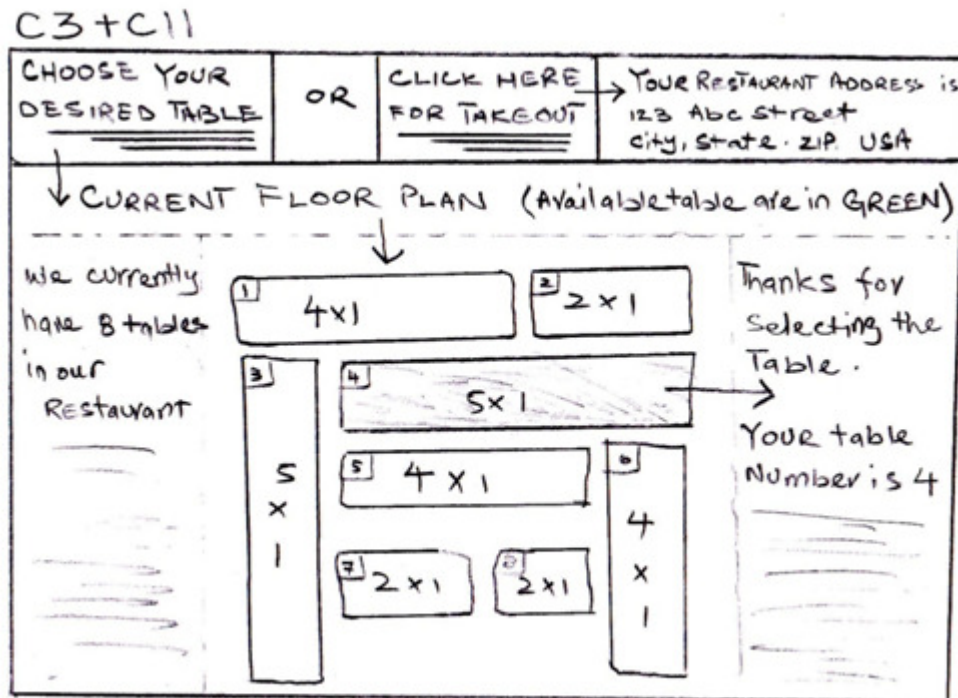 C3 + C11
CHOOSE YOUR
DESIRED TABLE
OR
CLICK HERE
FOR TAKEOUT
YOUR RESTAURANT ADDRESS is
123 Abc Street
City, State. ZIP. USA
CURRENT FLOOR PLAN (Available table are in GREEN)
We currently
have 8 tables
in our
Restaurant
1
4 x 1
2
2 x 1
3
5
x
1
4
5 x 1
5
4 x 1
6
4
x
1
7
2 x 1
8
2 x 1
Thanks for
Selecting the
Table.
Your table
Number is 4